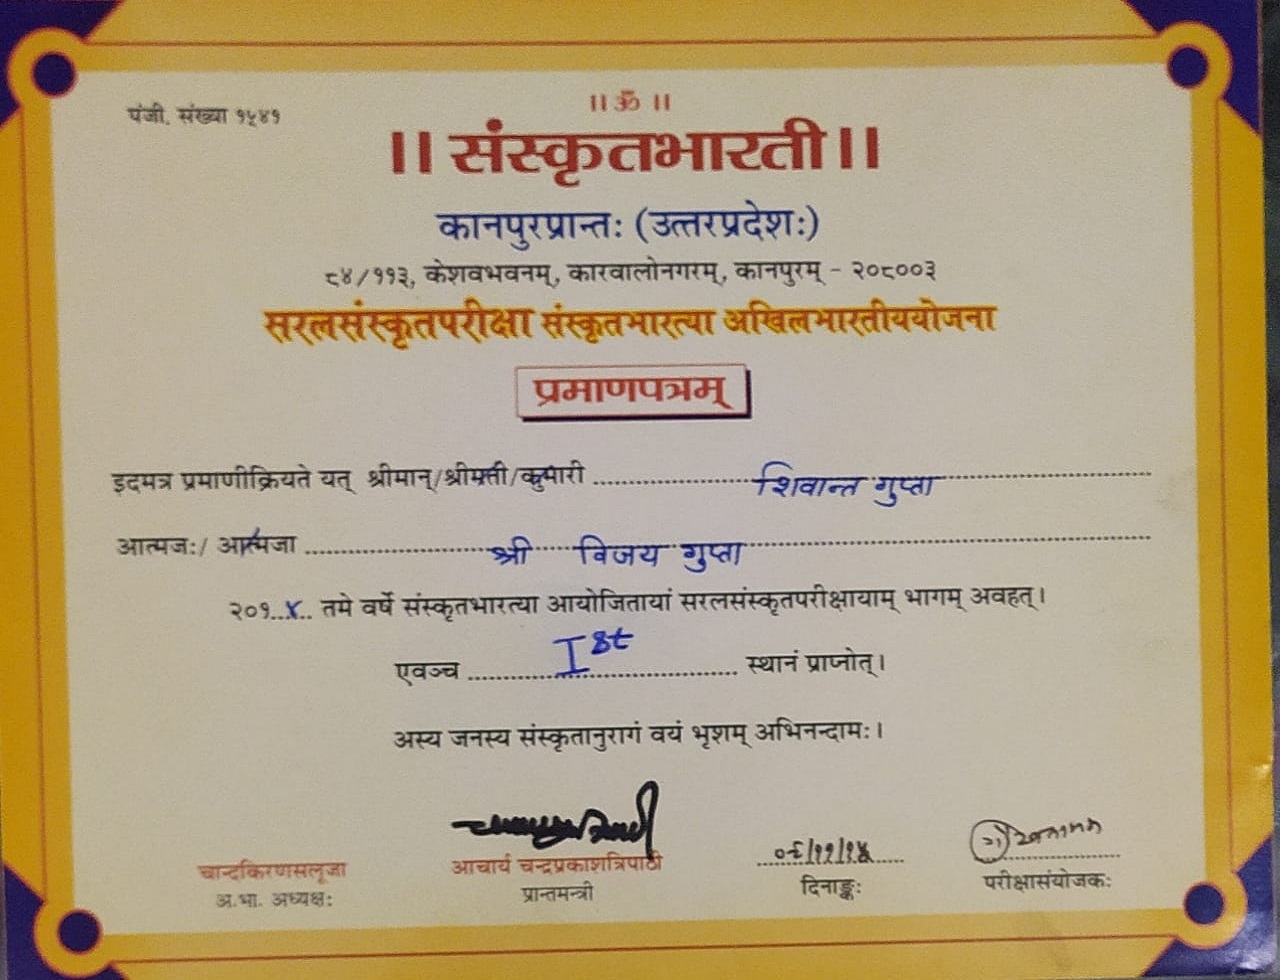 पंजी. संख्या १५४१
।। ॐ ।।
।। संस्कृतभारती ।।
कानपुरप्रान्तः (उत्तरप्रदेशः)
८४/११३, केशवभवनम्, कारवालोनगरम्, कानपुरम् - २०८००३
सरलसंस्कृतपरीक्षा संस्कृतभारत्या अखिलभारतीययोजना
प्रमाणपत्रम्
इदमत्र प्रमाणीक्रियते यत् श्रीमान्/श्रीमती/कुमारी शिवान्त गुप्ता
आत्मजः/ आत्मजा श्री विजय गुप्ता
२०१..४.. तमे वर्षे संस्कृतभारत्या आयोजितायां सरलसंस्कृतपरीक्षायाम् भागम् अवहत्।
एवञ्च Ist स्थानं प्राप्नोत्।
अस्य जनस्य संस्कृतानुरागं वयं भृशम् अभिनन्दामः।
चान्दकिरणसलूजा
अ.भा. अध्यक्षः
आचार्य चन्द्रप्रकाशत्रिपाठी
प्रान्तमन्त्री
दिनाङ्कः
परीक्षासंयोजकः